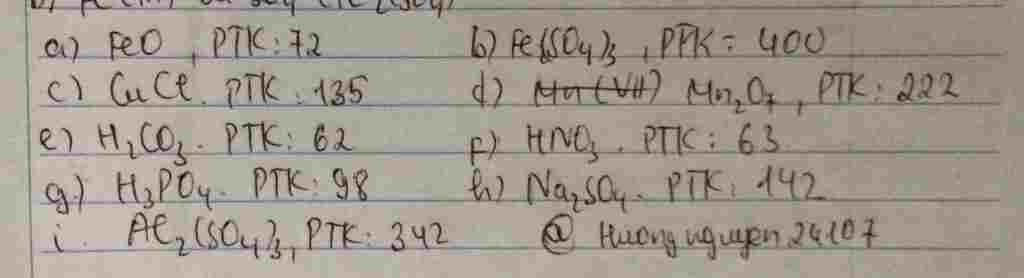 a) FeO, PTK: 72 b) Fe(SO4)3, PPK = 400
c) CuCl. PTK: 135 d) Mn2O7, PTK: 222
e) H2CO3. PTK: 62 f) HNO3. PTK: 63
g) H3PO4. PTK: 98 h) Na2SO4. PTK: 142
i. Al2(SO4)3, PTK: 342 @ Huongnguyen24107